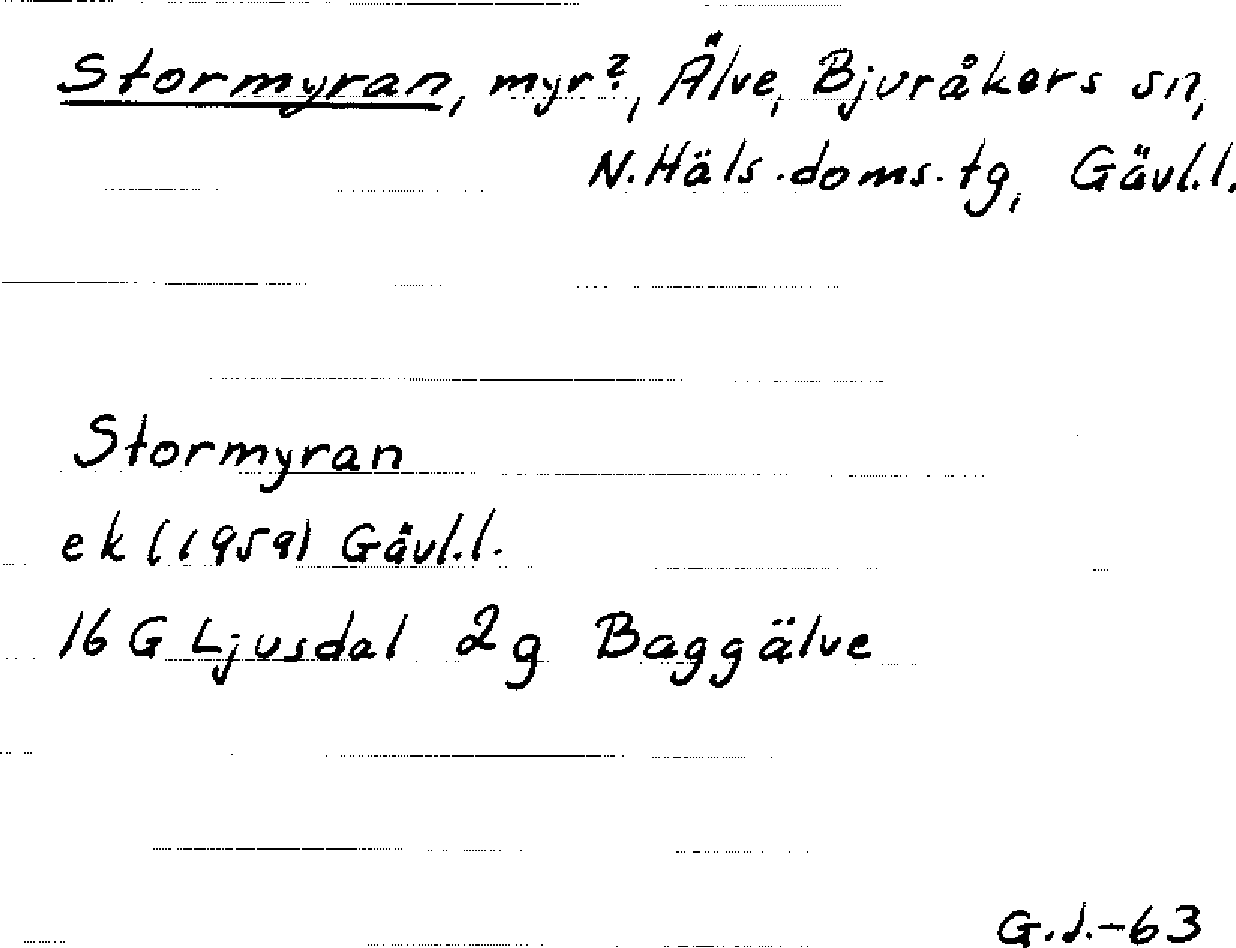 Stormyran, myr?, Älve, Bjuråkers sn,
N. Häls. doms. tg, Gävl.l.
Stormyran
ek (1959) Gävl.l.
16 G Ljusdal 2g Baggälve
G.J.-63